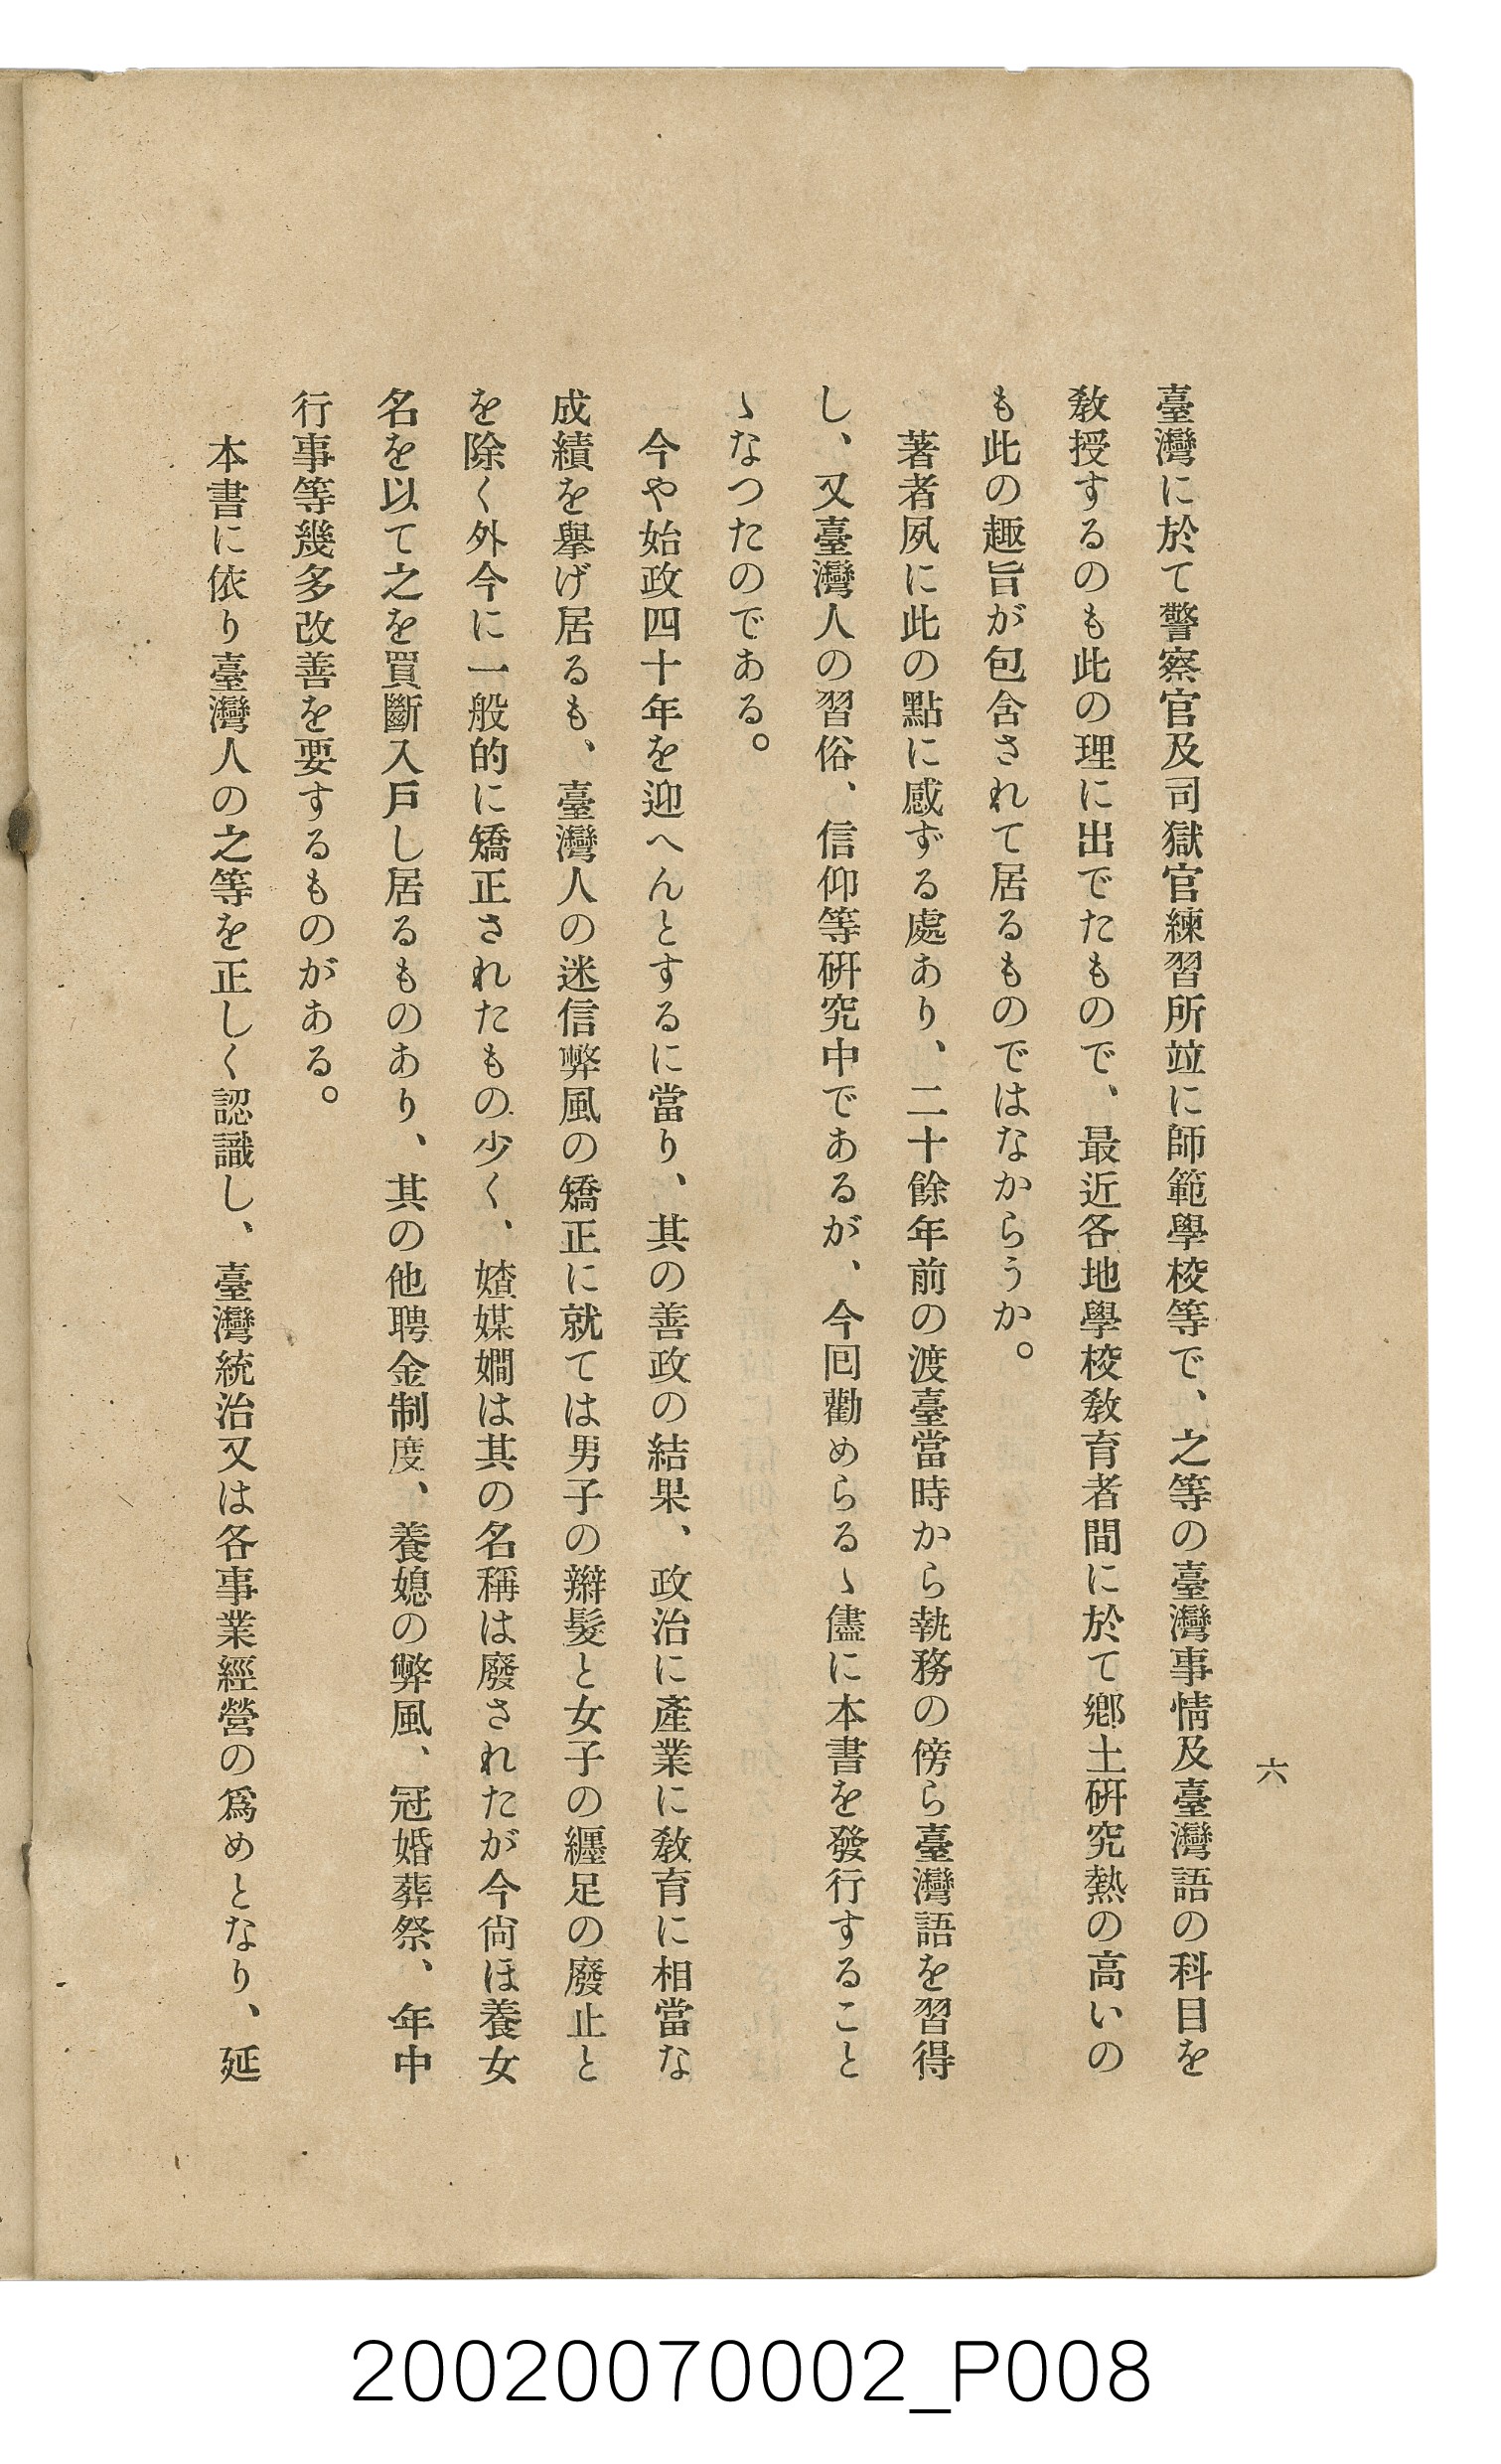 六
臺灣に於て警察官及司獄官練習所竝に師範學校等で、之等の臺灣事情及臺灣語の科目を
敎授するのも此の理に出でたもので、最近各地學校敎育者間に於て鄕土硏究熱の高いの
も此の趣旨が包含されて居るものではなからうか。
著者夙に此の點に感ずる處あり、二十餘年前の渡臺當時から執務の傍ら臺灣語を習得
し、又臺灣人の習俗、信仰等硏究中であるが、今囘勸めらるゝ儘に本書を發行すること
ゝなつたのである。
今や始政四十年を迎へんとするに當り、其の善政の結果、政治に產業に敎育に相當な
成績を擧げ居るも、臺灣人の迷信弊風の矯正に就ては男子の辮髮と女子の纏足の廢止と
を除く外今に一般的に矯正されたもの少く、媎媒嫺は其の名稱は廢されたが今尙ほ養女
名を以て之を買斷入戶し居るものあり、其の他聘金制度、養媳の弊風、冠婚葬祭、年中
行事等幾多改善を要するものがある。
本書に依り臺灣人の之等を正しく認識し、臺灣統治又は各事業經營の爲めとなり、延
20020070002_P008